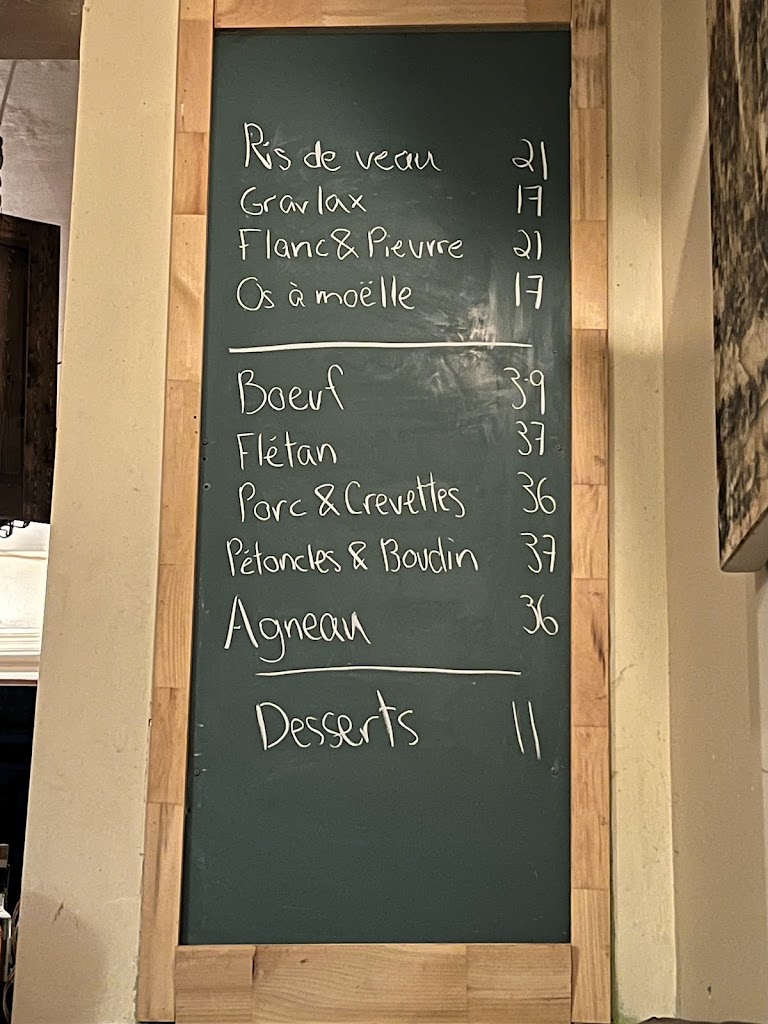 Ris de veau 21
Gravlax 17
Flanc & Pieuvre 21
Os à moëlle 17
Boeuf 39
Flétan 37
Porc & Crevettes 36
Pétoncles & Boudin 37
Agneau 36
Desserts 11